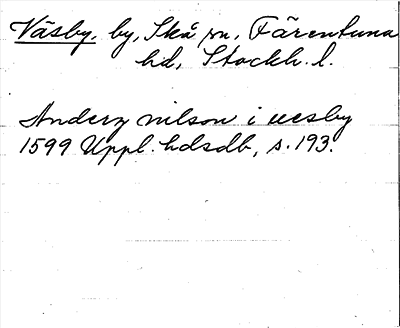 Väsby, by, Skå sn, Färentuna
hd, Stockh. l.
Anderz nilson i uesby
1599 Uppl. hdsdb, s. 193.